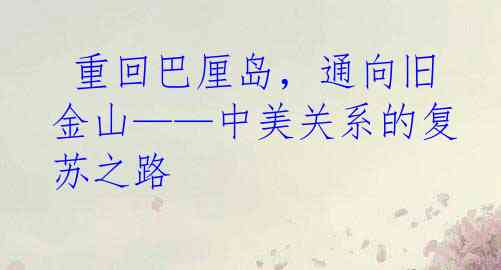 重回巴厘岛，通向旧
金山———中美关系的复
苏之路